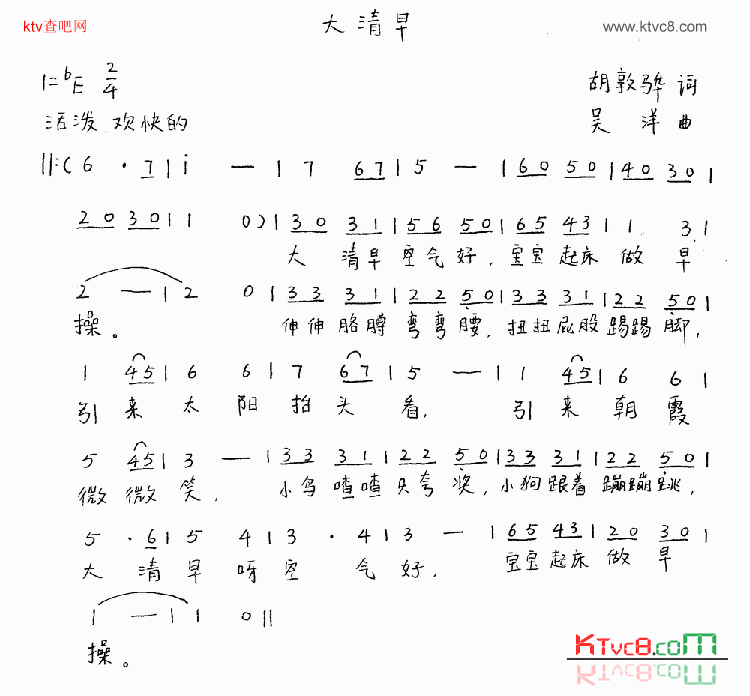 ktv查吧网
www.ktvc8.com
大清早
1=ᵇE 2/4
胡敦骅 词
活泼 欢快的
吴 洋 曲
‖:( 6 · 7 | i — | 7 6 7 | 5 — | 6 0 5 0 | 4 0 3 0 |
2 0 3 0 | 1 0 ) | 3 0 3 1 | 5 6 5 0 | 6 5 4 3 | 1 3 |
大 清早 空气 好, 宝宝 起床 做 早
2 — | 2 0 | 3 3 3 1 | 2 2 5 0 | 3 3 3 1 | 2 2 5 0 |
操。 伸伸 胳膊 弯弯 腰, 扭扭 屁股 踢踢 脚,
1 4 5 | 6 6 | 7 6 7 | 5 — | 1 4 5 | 6 6 |
引 来 太 阳 抬 头 看, 引 来 朝 霞
5 4 5 | 3 — | 3 3 3 1 | 2 2 5 0 | 3 3 3 1 | 2 2 5 0 |
微 微 笑, 小鸟 喳喳 只夸 奖, 小狗 跟着 蹦蹦 跳,
5 · 6 | 5 4 | 3 · 4 | 3 — | 6 5 4 3 | 2 0 3 0 |
大 清 早 呀 空 气 好, 宝宝 起床 做 早
1 — | 1 0 ‖
操。
KTVC8.COM